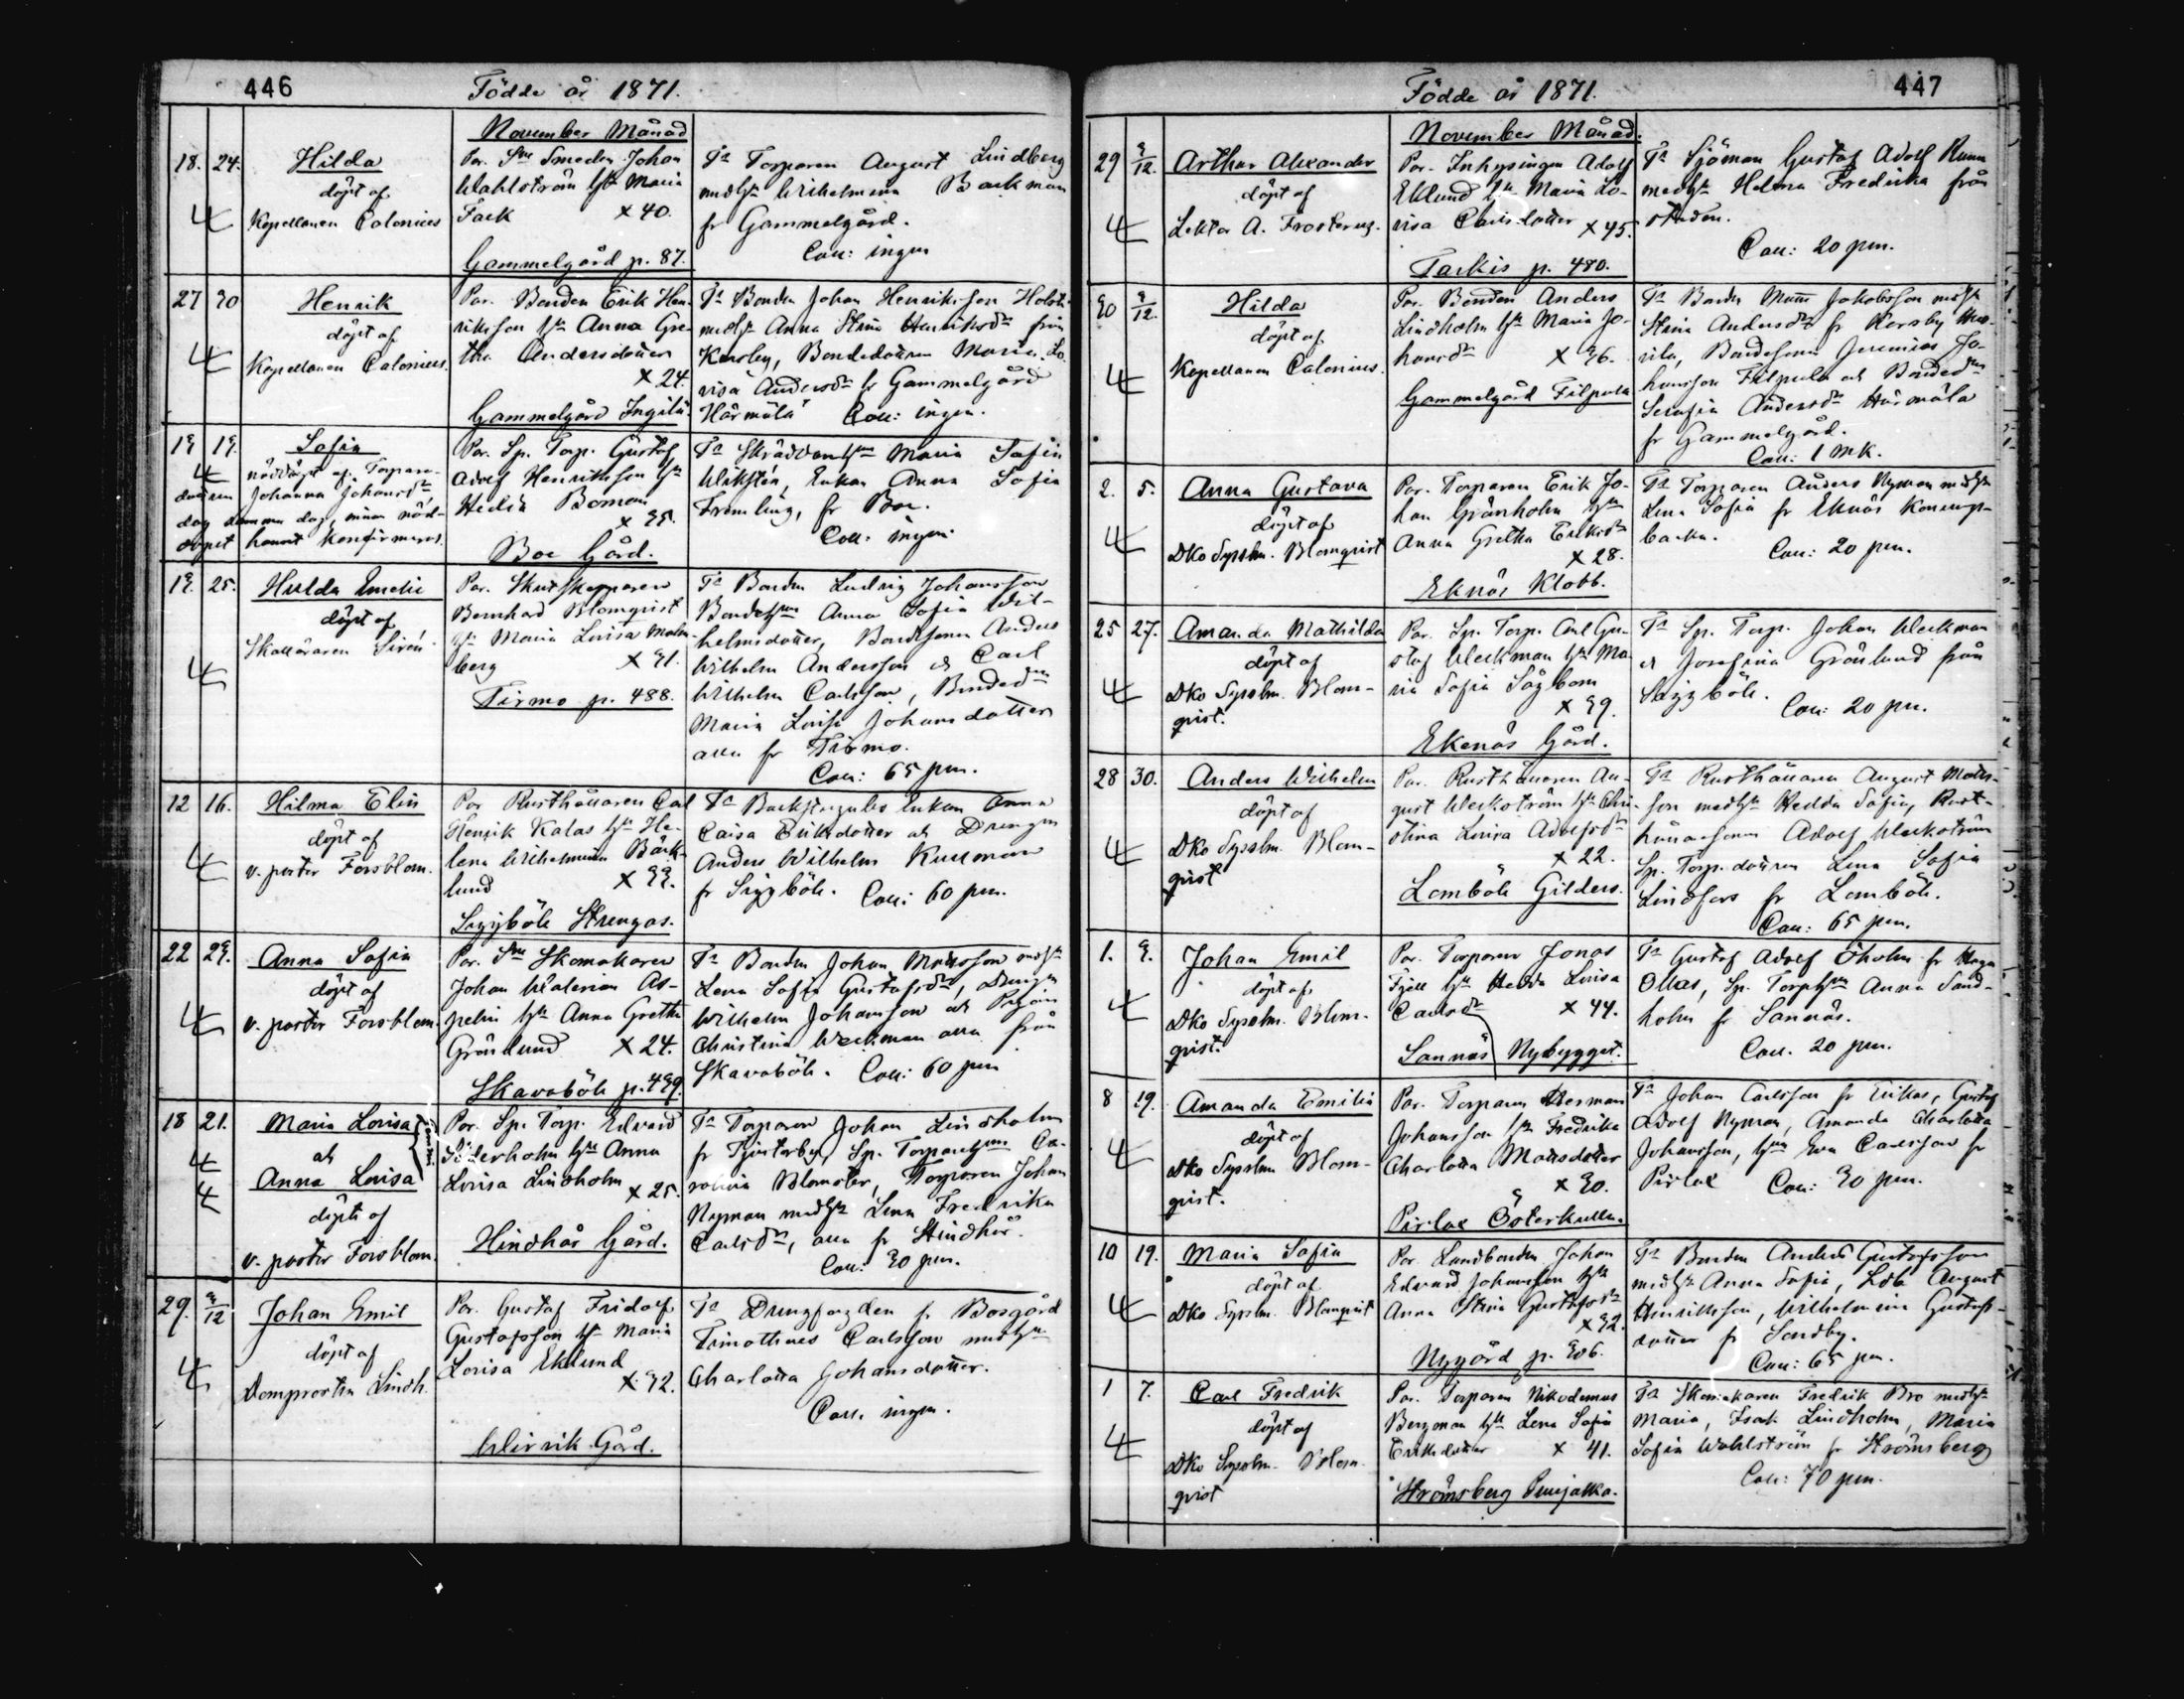 446
Födde år 1871.
November Månad
18. 24.
Hilda
döpt af
Kapellanen Calonius
Par. Smeden Johan
Wahlström hu Maria
Fack × 40.
Gammelgård p. 87.
Torparen August Lindberg
med hu Wilhelmina Backman
fr Gammelgård.
Coll: ingen
27 30
Henrik
döpt af
Kapellanen Calonius.
Par. Bonden Erik Hen-
riksson hu Anna Gre-
tha Andersdotter
× 24.
Gammelgård Ingilä.
Bonden Johan Henriksson
med hu Anna Stina Henriksdr från
Kersby, Bondedottren Maria Lo-
visa Andersdr fr Gammelgård
Härmälä Coll: ingen.
13 19.
Sofia
nöddöpt af Torpare-
dottren Johanna Johansdr
samma dag, innan nöd-
dopet hunnit konfirmeras.
Par. Sp. Torp. Gustaf
Adolf Henriksson hu
Hedda Boman
× 35.
Boe Gård.
Skräddarehun Maria Sofia
Wiksten, Enkan Anna Sofia
Fremling, fr Boe.
Coll: ingen.
13. 25.
Hulda Emelie
döpt af
Skolläraren Sirén
Par. Skutskepparen
Bernhard Blomqvist
hu Maria Lovisa Malm-
berg × 31.
Tirmo p. 488.
Bonden Ludvig Johansson
Bondehun Anna Sofia Wil-
helmsdotter, Bondesonen Anders
Wilhelm Andersson o Carl
Wilhelm Carlsson, Bondedn
Maria Lovisa Johansdotter
alla fr Tirmo.
Coll: 65 pm.
12 16.
Hilma Elin
döpt af
v. pastor Forsblom.
Par Rusthållaren Carl
Henrik Kalas hu He-
lena Wilhelmina Bäck-
lund × 33.
Siggböle Strengas.
Backstugubo Enkan Anna
Caisa Eriksdotter och Drengen
Anders Wilhelm Kullman
fr Siggböle. Coll: 60 pm.
22 23.
Anna Sofia
döpt af
v. pastor Forsblom.
Par. Skomakaren
Johan Walerian As-
pelin hu Anna Gretha
Grönlund × 24.
Skavaböle p. 439
Bonden Johan Mattsson med hu
Lena Sofia Gustafsdr, Drengen
Wilhelm Johansson och Pigan
Christina Weckman alla från
Skavaböle. Coll: 60 pm
18 21.
Maria Lovisa
och
Anna Lovisa
döpte af
v. pastor Forsblom.
Par. Sp. Torp. Edvard
Söderholm hu Anna
Lovisa Lindholm × 25.
Hindhår Gård.
Torparen Johan Lindholm
fr Tjusterby, Sp. Torparehun Ca-
rolina Blomster, Torparen Johan
Nyman med hu Lena Fredrika
Carlsdr, alla fr Hindhår.
Coll: 30 pm.
29. 3/12
Johan Emil
döpt af
Domprosten Lindh.
Par. Gustaf Fridolf
Gustafsson hu Maria
Lovisa Eklund
× 32.
Wirvik Gård.
fr Bosgård
Timotheus Carlsson med hu
Charlotta Johansdotter.
Coll. ingen.
447
Födde år 1871.
November Månad.
29 3/12.
Arthur Alexander
döpt af
Lektor A. Frosterus.
Par. Inhysingen Adolf
Eklund hu Maria Lo-
visa Carlsdotter × 45.
Tarkis p. 480.
Sjöman Gustaf Adolf
med hu Helena Fredrika från
staden.
Coll: 20 pm.
30 3/12.
Hilda
döpt af
Kapellanen Calonius.
Par. Bonden Anders
Lindholm hu Maria Jo-
hansdr × 36.
Gammelgård Filpula
Bonden Jakobsson med hu
Stina Andersdr fr Kersby
Bondesonen Jeremias Jo-
hansson Filpula och Bondedn
Serafia Andersdr Härmälä
fr Gammelgård.
Coll: 1 mk.
2. 5.
Anna Gustava
döpt af
Dko Sysslm. Blomqvist
Par. Torparen Erik Jo-
han Grönholm hu
Anna Gretha Eriksdr
× 28.
Eknäs Klobb.
Torparen Anders Nyman med hu
Lena Sofia fr Eknäs
backa.
Coll: 20 pm.
25 27.
Amanda Mathilda
döpt af
Dko Sysslm. Blom-
qvist.
Par. Sp. Torp. Carl Gu-
staf Weckman hu Ma-
ria Sofia Sågbom
× 39.
Ekenäs Gård.
Sp. Torp. Johan Weckman
o Josefina Grönlund från
Siggböle.
Coll: 20 pm.
28 30.
Anders Wilhelm
döpt af
Dko Sysslm. Blom-
qvist
Par. Rusthållaren Au-
gust Weckström hu Chri-
stina Lovisa Adolfsdr
× 22.
Lomböle Gilders.
Rusthållaren August Matts-
son med hu Hedda Sofia, Rust-
hållaresonen Adolf Weckström
Sp. Torp. dottren Lena Sofia
Lindfors fr Lomböle.
Coll: 65 pm.
1. 3.
Johan Emil
döpt af
Dko Sysslm. Blom-
qvist.
Par. Torparen Jonas
Fjell hu Hedda Lovisa
Carlsdr × 44.
Sannäs Nybygget.
Gustaf Adolf Öholm fr
Ollas, Sp. Torphun Anna Sand-
holm fr Sannäs.
Coll. 20 pm.
8 19.
Amanda Emilia
döpt af
Dko Sysslm Blom-
qvist.
Par. Torparen Herman
Johansson hu Fredrika
Charlotta Mattsdotter
× 30.
Pirlax Österkulla.
Johan Carlsson fr Erikas, Gustaf
Adolf Nyman, Amanda Charlotta
Johansson, hun Eva Carlsson fr
Pirlax Coll: 30 pm.
10 19.
Maria Sofia
döpt af
Dko Sysslm. Blomqvist
Par. Landbonden Johan
Edvard Johansson hu
Anna Stina Gustafsdr
× 32.
Nygård p. 306.
Bonden Anders Gustafsson
med hu Anna Sofia, Lbk August
Henriksson, Wilhelmina Gustafs-
dotter fr Sondby.
Coll: 65 pm.
1 7.
Carl Fredrik
döpt af
Dko Sysslm. Blom-
qvist
Par. Torparen Nikodemus
Bergman hu Lena Sofia
Eriksdotter × 41.
Strömsberg Punjakka.
Skomakaren Fredrik Bro med hu
Maria, Isak Lindholm, Maria
Sofia Wahlström fr Strömsberg
Coll: 70 pm.